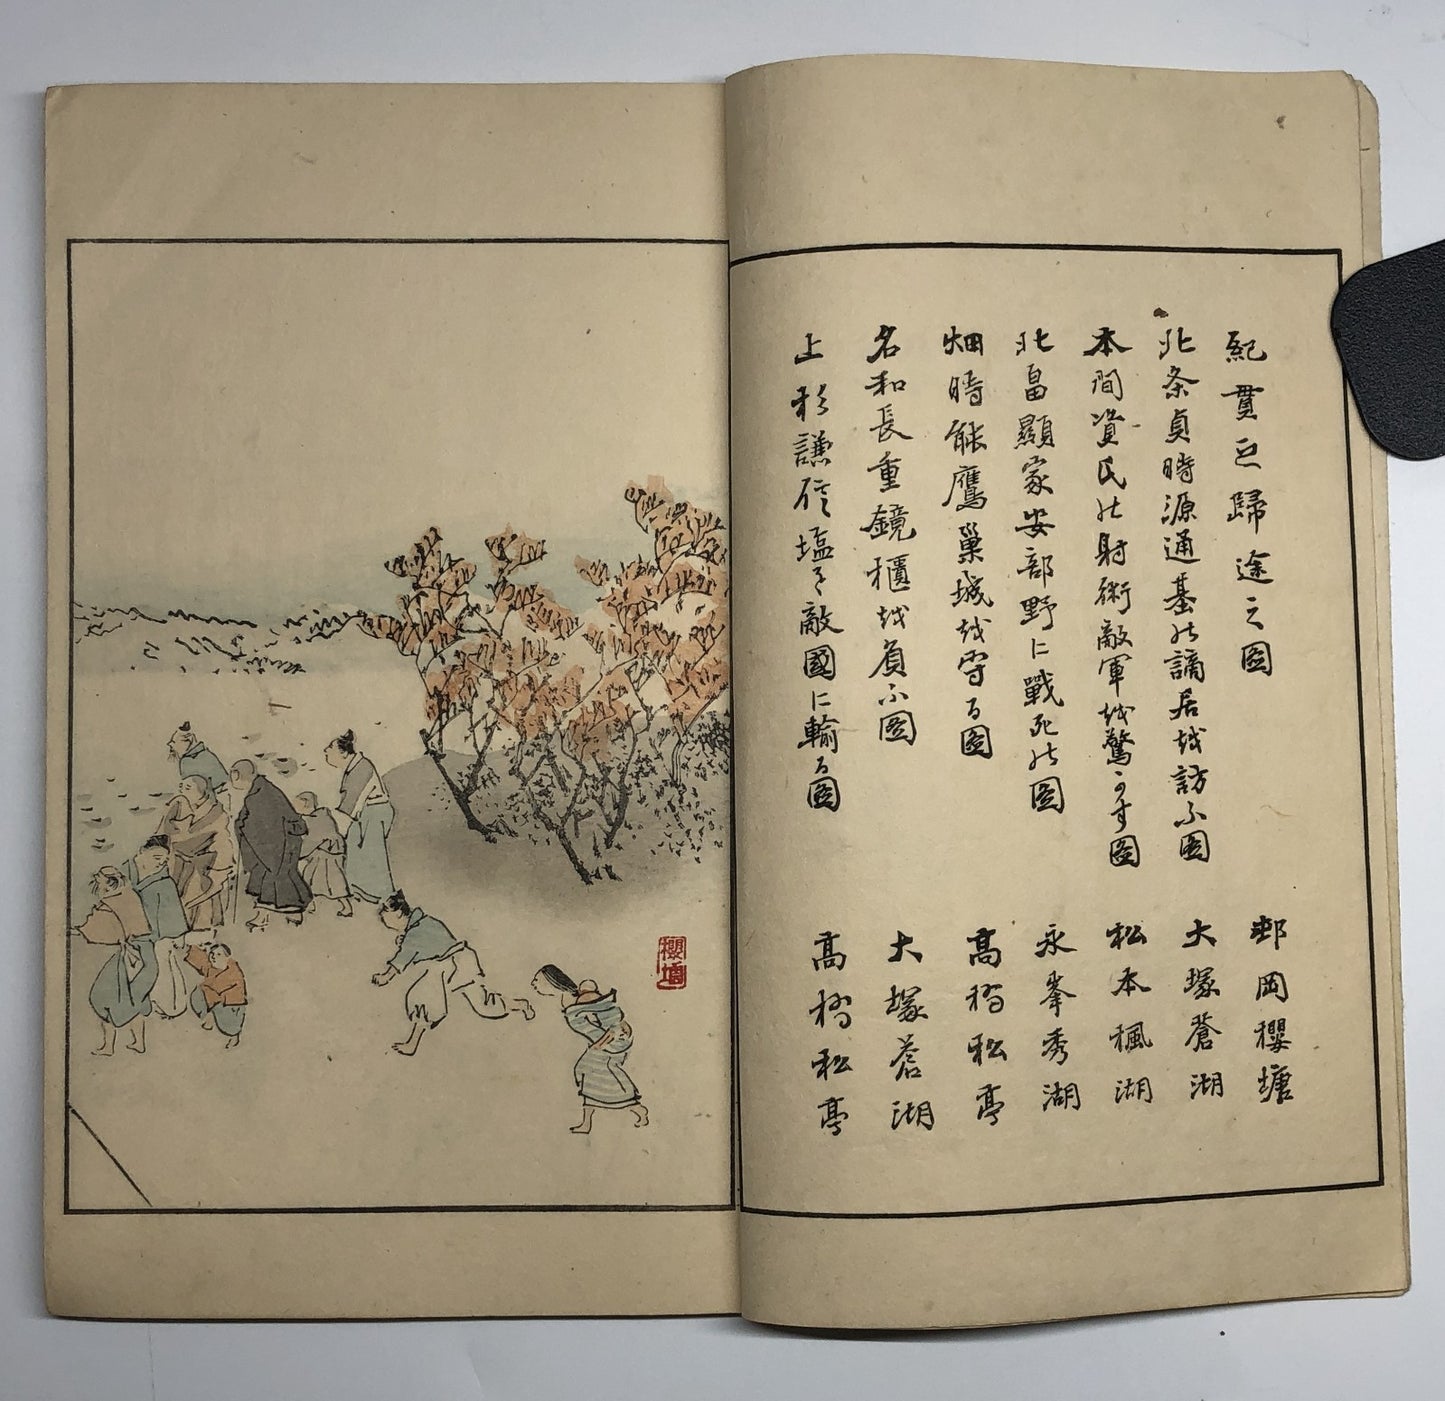 紀貫之歸途之圖 邨岡櫻塘
北条貞時源通基の謫居越訪ふ圖 大塚蒼湖
本間資氏の射術敵軍越驚かす圖 松本楓湖
北畠顯家安部野に戰死の圖 永峯秀湖
畑時能鷹巢城越守る圖 高橋松亭
名和長重鏡櫃越負ふ圖 大塚蒼湖
上杉謙信塩を敵國に輸る圖 高橋松亭
櫻塘